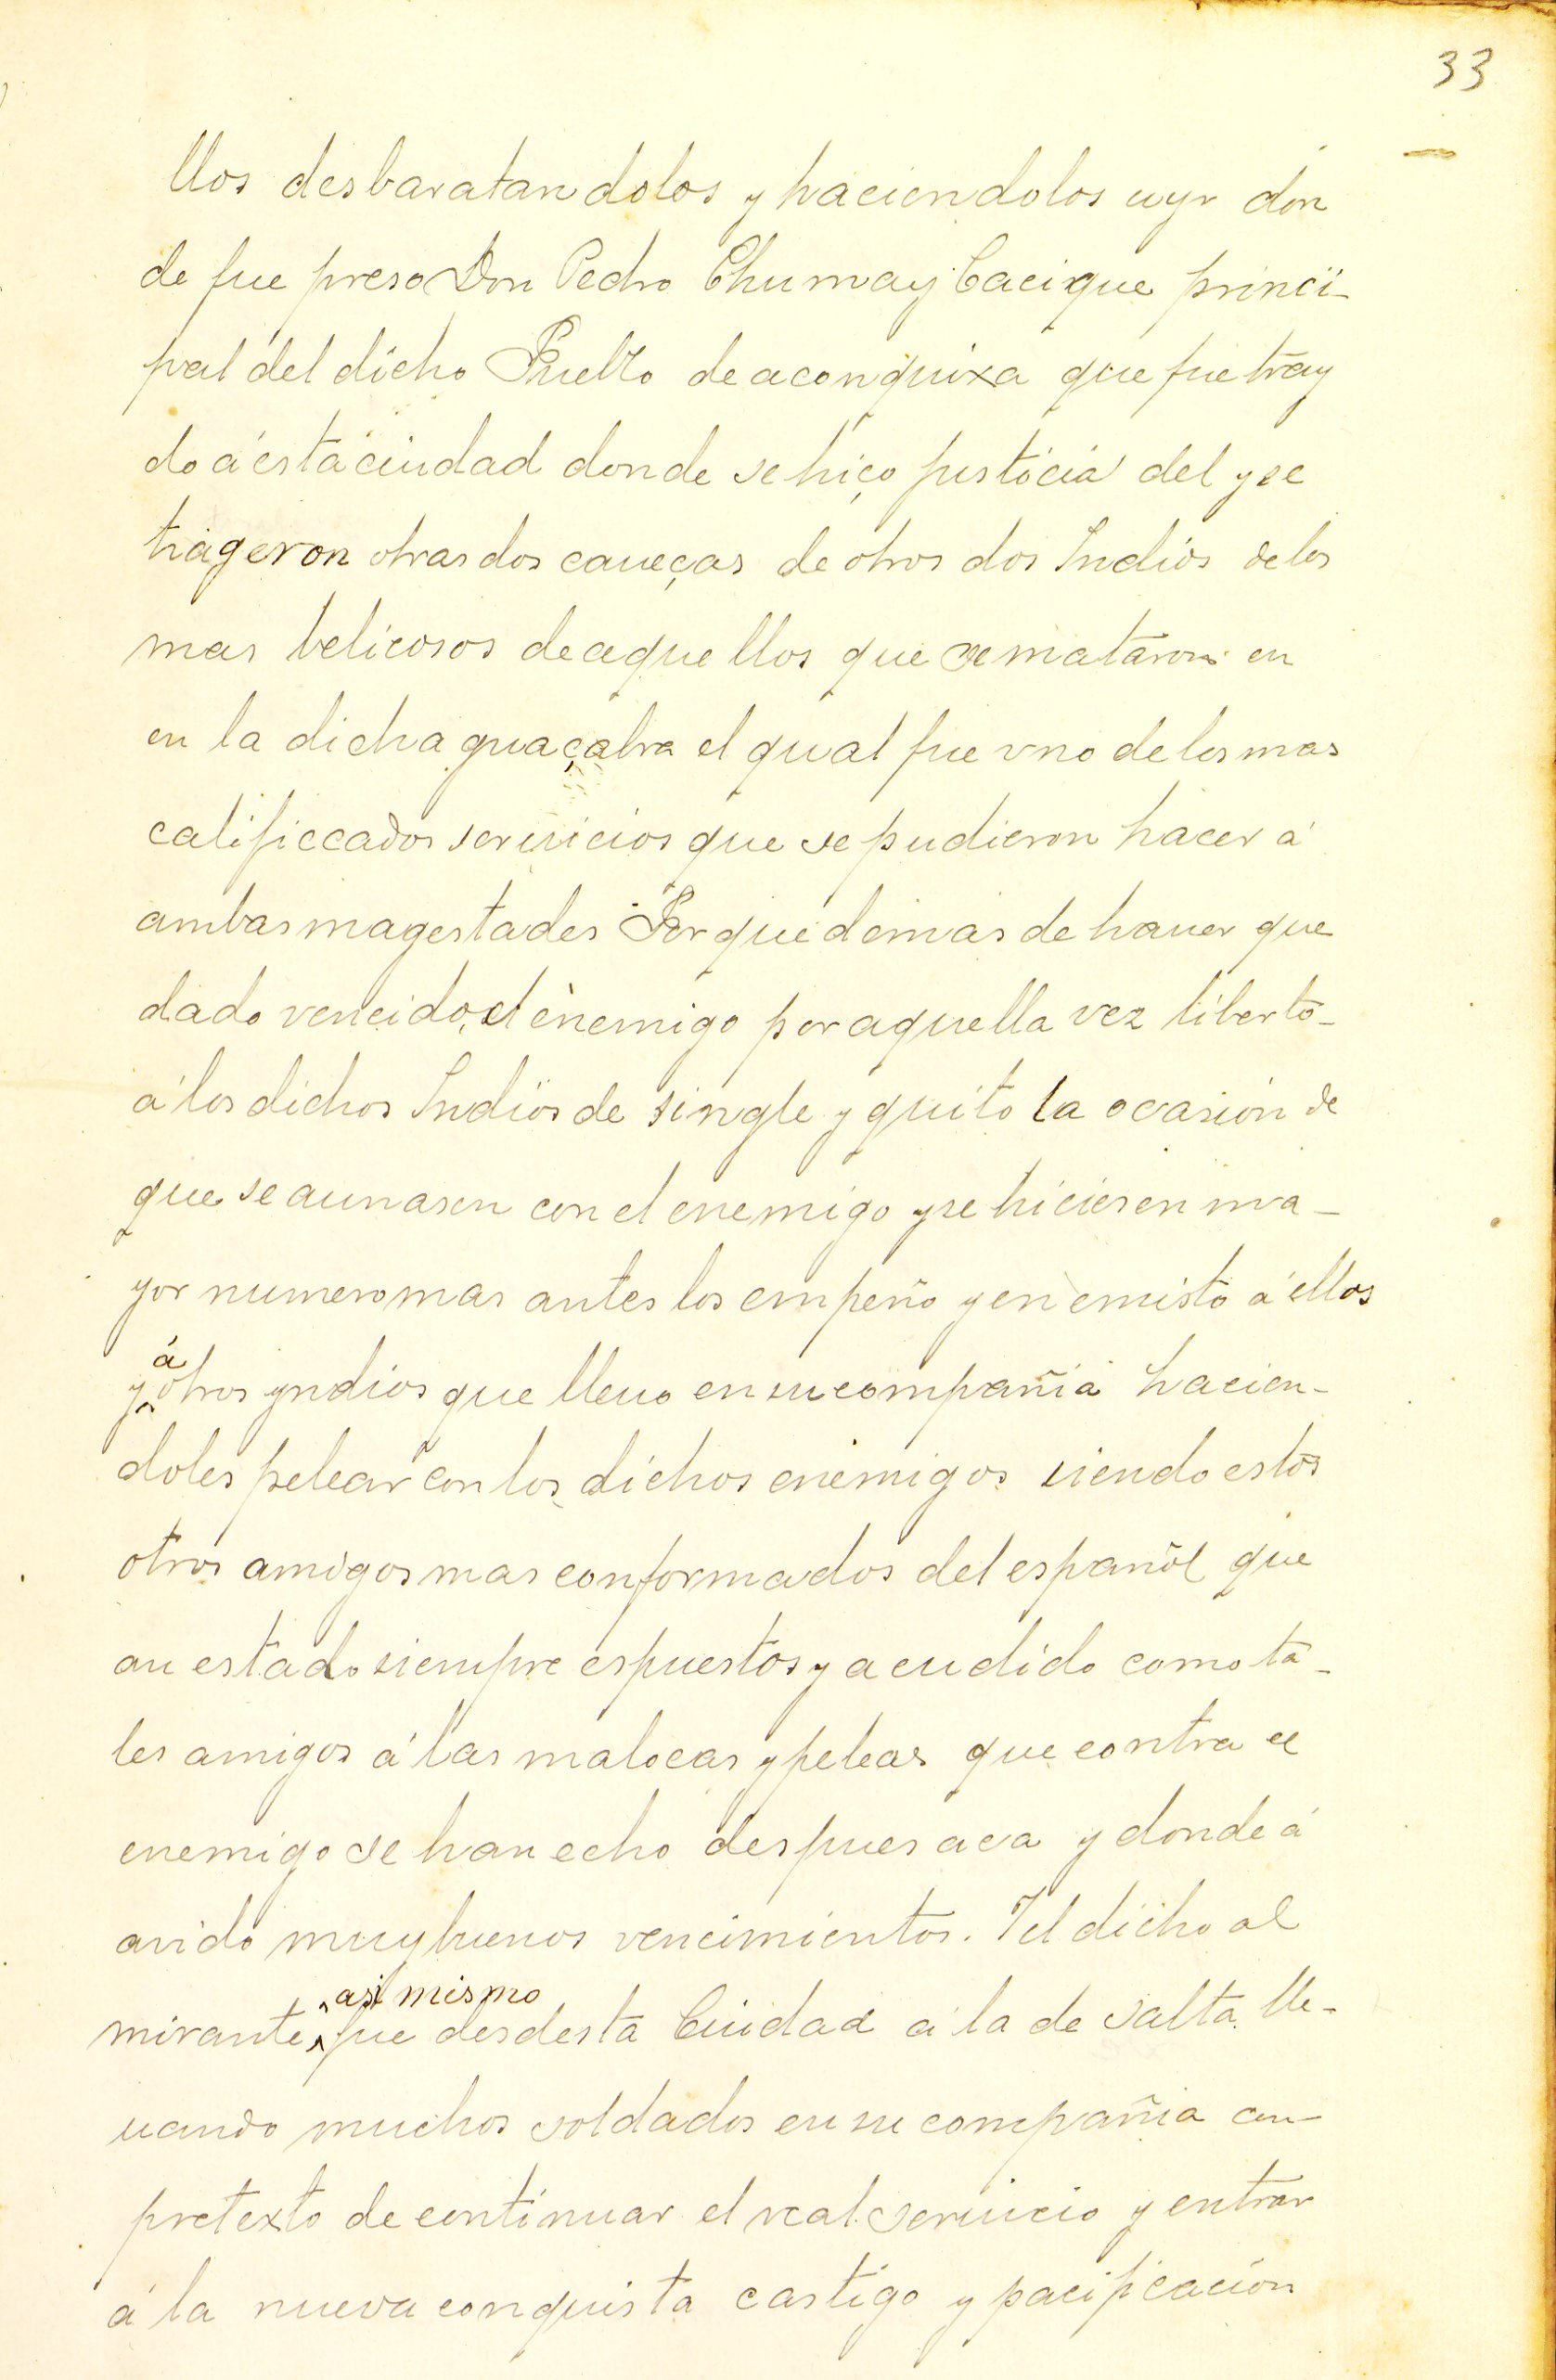 33
llos desbaratandolos y haciendolos uyr don
de fue preso Don Pedro Chumay Cacique princi-
pal del dicho Pueblo de aconquixa que fue tray
do á esta ciudad donde se hiço justicia del y se
trageron otras dos caueças de otros dos Indios de los
mas belicosos de aquellos que se mataron en
en la dicha guaçabra el qual fue vno de los mas
calificcados seruicios que se pudieron hacer á
ambas magestades Porque demas de hauer que
dado vencido el enemigo por aquella vez liberto-
á los dichos Indios de single y quito la ocasion de
que se aunasen con el enemigo y se hiciesen ma-
yor numero mas antes los empeño y enemisto á ellos
y á otros yndios que lleuo en su compañia hacien-
doles pelear con los dichos enemigos siendo estos
otros amigos mas conformados del español que
an estado siempre espuestos y acudido como ta-
les amigos á las malocas y peleas que contra el
enemigo se han echo despues aca y donde á
avido muy buenos vencimientos. Y el dicho al
mirante asi mismo fue desdesta Ciudad á la de Salta lle-
uando muchos soldados en su compañia con
pretexto de continuar el real seruicio y entrar
á la nueva conquista castigo y pacificacion